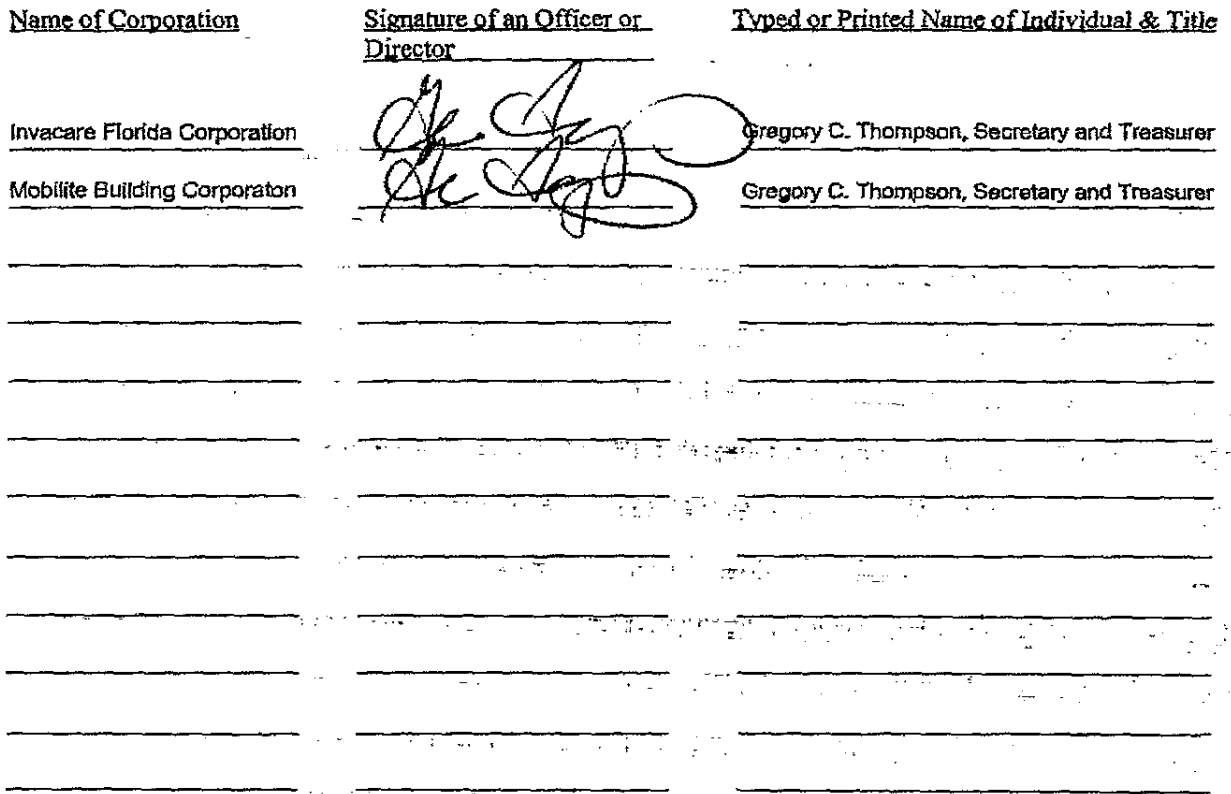 Name of Corporation Signature of an Officer or Director Typed or Printed Name of Individual & Title
Invacare Florida Corporation Gregory C. Thompson, Secretary and Treasurer
Mobilite Building Corporaton Gregory C. Thompson, Secretary and Treasurer